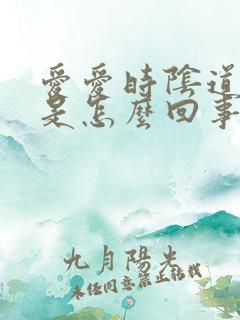 愛愛時陰道
是怎麼回事
九月陽光
未經同意禁止轉載